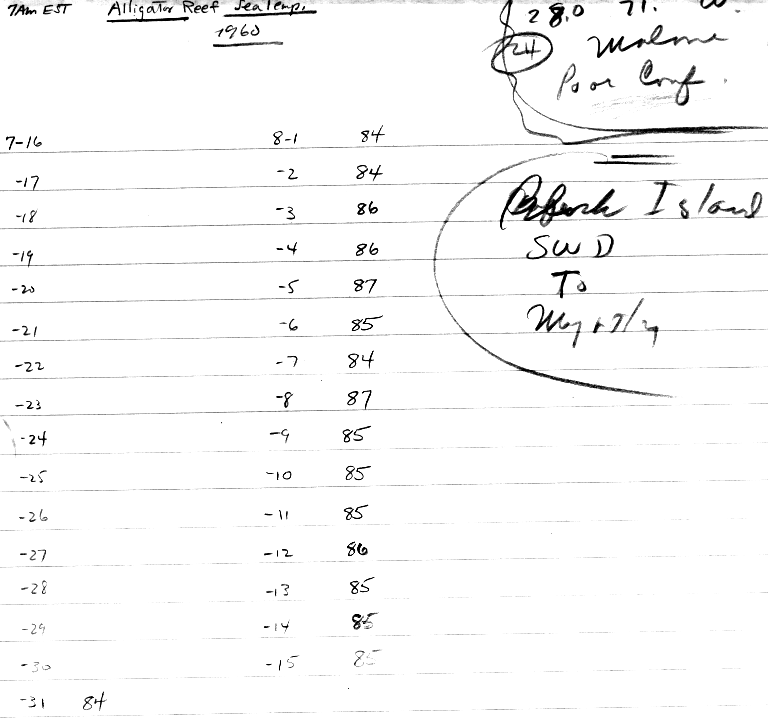 7AM EST Alligator Reef Sea Temp.
1960
28.0 71. W.
24 Malone
Poor Conf.
7-16 8-1 84
-17 -2 84
-18 -3 86
-19 -4 86
-20 -5 87
-21 -6 85
-22 -7 84
-23 -8 87
-24 -9 85
-25 -10 85
-26 -11 85
-27 -12 86
-28 -13 85
-29 -14 85
-30 -15 85
-31 84
Island
SWD
To